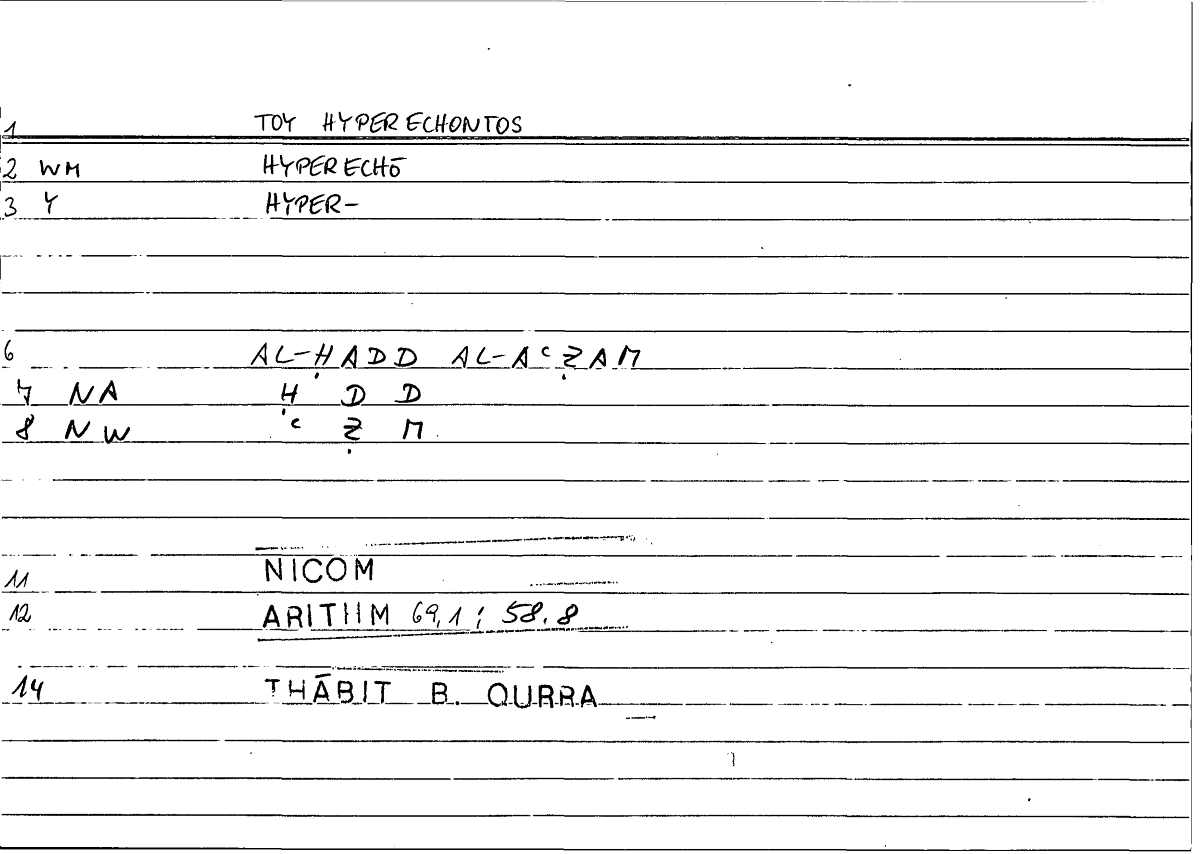 1 TOY HYPERECHONTOS
2 WM HYPERECHŌ
3 Y HYPER-
6 AL-ḤADD AL-AᶜẒAM
7 NA Ḥ D D
8 NW ᶜ Ẓ M
11 NICOM
12 ARITHM 69,1; 58.8
14 THĀBIT B. QURRA